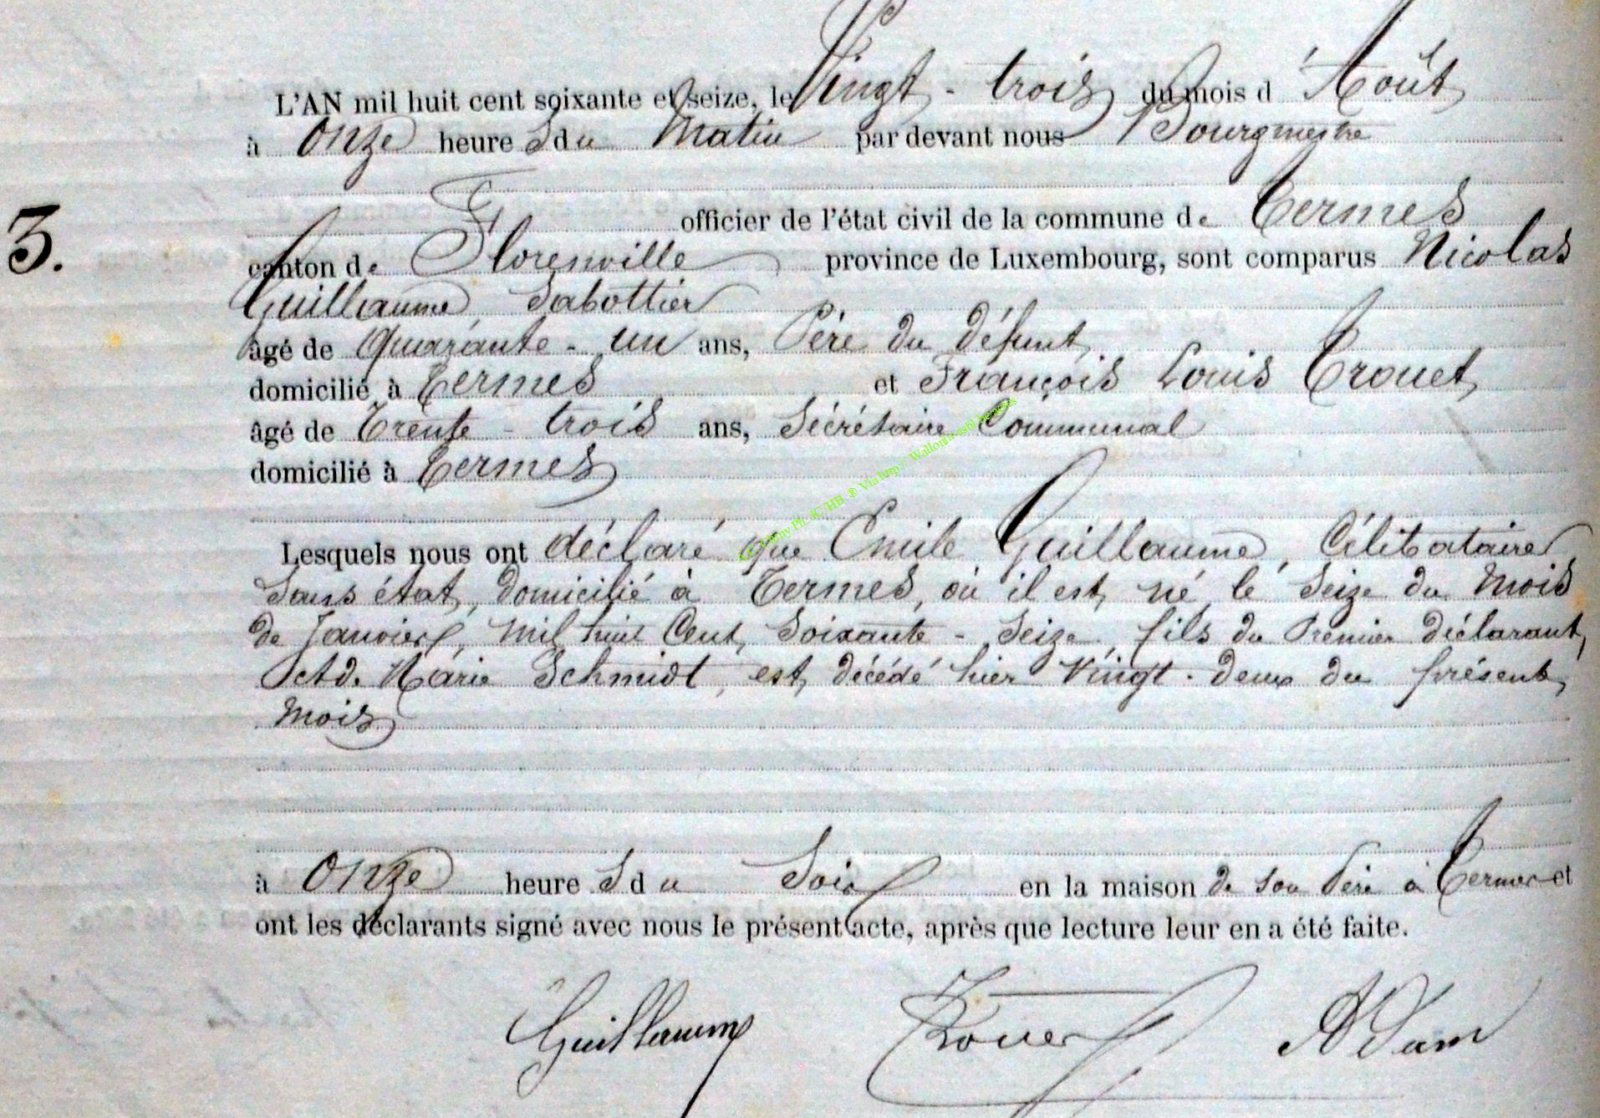 L'AN mil huit cent soixante et seize, le Vingt-trois du mois d'Août
à Onze heures du Matin par devant nous Bourgmestre
officier de l'état civil de la commune de Termes
3.
canton de Florenville province de Luxembourg, sont comparus Nicolas
Guillaume Sabottier
âgé de quarante-un ans, Père du défunt
domicilié à Termes et François Louis Trouet,
âgé de Trente-trois ans, Sécrétaire Communal
domicilié à Termes
Lesquels nous ont déclaré que Emile Guillaume, Célibataire
Sans état, domicilié à Termes, où il est né le Seize du Mois
de Janvier, mil huit Cent Soixante-Seize fils du Premier déclarant,
et de Marie Schmidt, est décédé hier Vingt-deux du présent
mois
à Onze heures du Soir en la maison de son Père à Termes et
ont les déclarants signé avec nous le présent acte, après que lecture leur en a été faite.
Guillaume Trouet Adam